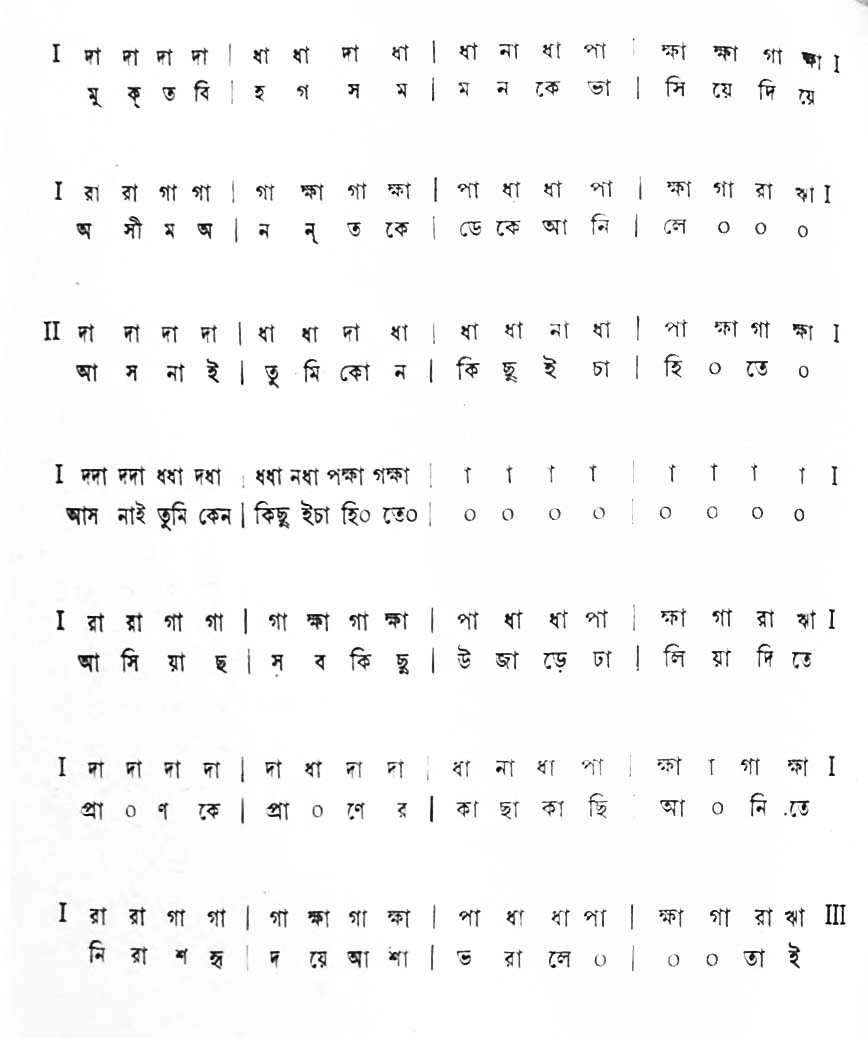 I দা দা দা দা | ধা ধা দা ধা | ধা না ধা পা | ক্ষা ক্ষা গা ক্ষা I
মূ ক্ ত বি | হ গ স ম | ম ন কে ভা | সি য়ে দি য়ে
I রা রা গা গা | গা ক্ষা গা ক্ষা | পা ধা ধা পা | ক্ষা গা রা ঋা I
অ সী ম অ | ন ন্ ত কে | ডে কে আ নি | লে ০ ০ ০
II দা দা দা দা | ধা ধা দা ধা | ধা ধা না ধা | পা ক্ষা গা ক্ষা I
আ স না ই | তু মি কো ন | কি ছু ই চা | হি ০ তে ০
I দদা দদা ধধা দধা | ধধা নধা পক্ষা গক্ষা | া া া া | া া া া I
আস নাই তুমি কেন | কিছু ইচা হি০ তে০ | ০ ০ ০ ০ | ০ ০ ০ ০
I রা রা গা গা | গা ক্ষা গা ক্ষা | পা ধা ধা পা | ক্ষা গা রা ঋা I
আ সি য়া ছ | স ব কি ছু | উ জা ড়ে ঢা | লি য়া দি তে
I দা দা দা দা | দা ধা দা দা | ধা না ধা পা | ক্ষা া গা ক্ষা I
প্রা ০ ণ কে | প্রা ০ ণে র | কা ছা কা ছি আ ০ নি তে
I রা রা গা গা | গা ক্ষা গা ক্ষা | পা ধা ধা পা | ক্ষা গা রা ঋা III
নি রা শ হৃ | দ য়ে আ শা | ভ রা লে ০ | ০ ০ তা ই